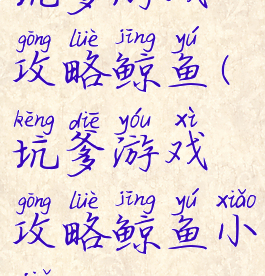 gōng lüè jīng yú
攻略鲸鱼(
kēng diē yóu xì
坑爹游戏
gōng lüè jīng yú xiǎo
攻略鲸鱼小